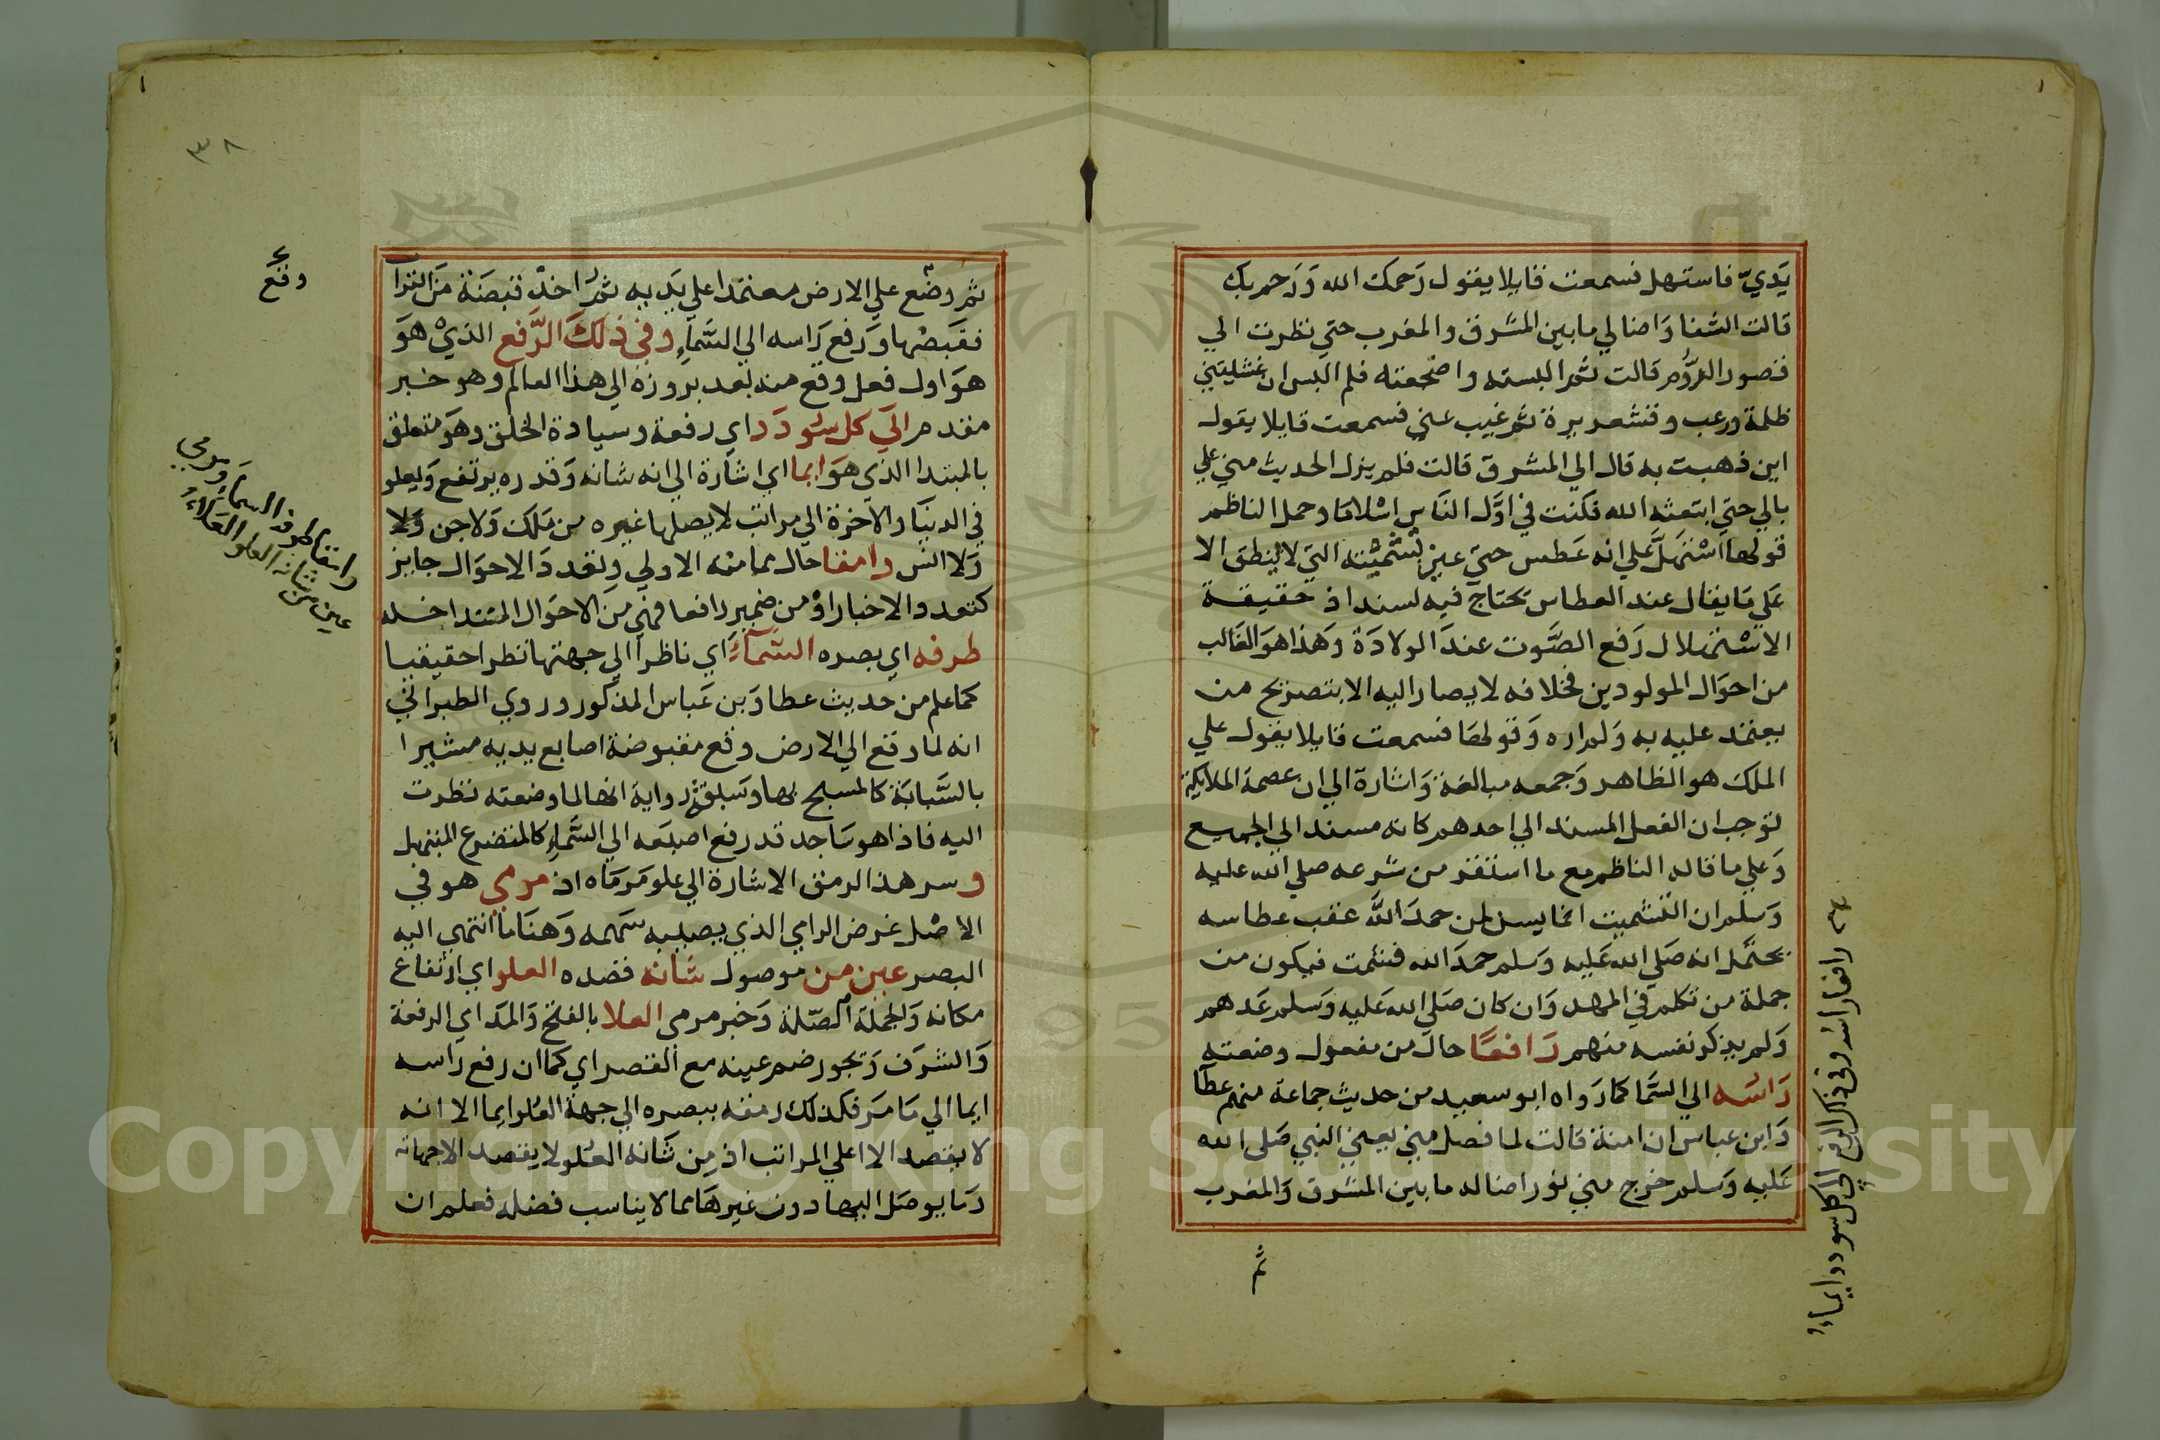 يَدَيّ فاستهل فسمعت قايلا يقول رَحمك الله وَرَحم ربك
قالت الشفا وَاضا لي ما بين المشرق والمغرب حتي نظرت الي
قصور الرُّوم قالت ثم البسته واضجعته فلم البس ان غشيتني
ظلمة ورعب وقشعريرة ثم غيب عني فسمعت قايلا يقول
اين ذهبت به قال الي المشرق قالت فلم يزل الحديث مني علي
بالي حتي ابتعثه الله فكنت في اوَّل النَّاس اسْلامًا وحمل الناظم
قولها اسْتهَلَّ علي انه عَطس حتي عبر بتشميته التي لا ينطق الا
عَلي مَا يقال عند العطاس يحتاج فيه لسند اذ حقيقة
الاسْتهلال رَفع الصَّوت عند الولادَة وَهذا هوَ الغَالب
من احوَال المولودين فخلافه لا يصار اليه الا بتصريح من
يعتمد عليه به وَلم اره وَقولها فسمعت قايلا يقول علي
الملك هو الظاهر وَجمعه مبالغة وَاشارة الي ان عصمة الملايكة
توجب ان الفعل المسند الي احدهم كانه مسند الي الجميع
وَعلي ما قاله الناظم مع ما استقر من شرعه صلي الله عليه
وَسلم ان التشميت انما يسن لمن حمدَ اللّه عقب عطاسه
يحتمَل انه صَلي الله عَليه وَسلم حمدَ الله فشمت فيكون من
جملة من تكلم في المهد وَان كان صَلي الله عَليه وَسلم عَدهم
وَلم يذكر نفسه منهم رَافعًا حال من مفعول وضعته
رَاسَه الي السَّما كما رَوَاه ابو سعيد من حديث جماعة منهم عطا
وَابن عباس ان امنة قالت لما فصل مني يعني النبي صَلي الله
عَليه وَسلم خرج مني نور اضا له ما بين المشرق وَالمغرب
ثم
رافعا راسه وفي ذلك الرفع الي كل سودد ايماءُ
١
٣٨
ثم وضَع علي الارض معتمدا علي يدَيه ثم اخذ قبضَة منَ الترا
فقبَضها وَرَفع رَاسه الي السَّماءِ وفي ذلكَ الرَّفع الذيْ هوَ
هوَ اول فعل وقع منه بَعد بروزه الي هذا العالم وهو خبر
مقدم الَي كل سُودَد اي رفعة وسيادة الخلق وهوَ متعلق
بالمبتدا الذي هوَ ايما اي اشارة الي انه شانه وَقدره يرتفع وَيعلو
في الدنيَا والاخرَة الي مراتب لا يصلها غيره من مَلك وَلا جن وَلا
وَلا انس رامقا حال مما منه الاولي وتعدد الاحوَال جايز
كتعدد الاخبار اوْ من ضمير رافعا فهي من الاحوَال المتداخله
طرفه اي بصره السَّمآءَ اي ناظرا الي جهتها نظرا حقيقيا
كما علم من حديث عطا وَبن عَباس المذكور وروي الطبراني
انه لما وقع الي الارض وقع مقبوضة اصابع يديه مشيرا
بالسَّبابَة كالمسبح بها وسَبق في رواية انها لما وضعته نظرت
اليه فاذا هو سَاجد قد رفع اصبعَه الي السَّماءِ كالمتضرع المبتهل
وسر هذا الرمق الاشارة الي علو مَرمَاه اذ مرمي هو في
الاصْل غرض الرامي الذي يصيبه سَهمه وَهنَا ما انتهي اليه
البصر عين من موصول شَانه قصده العلو اي ارتفاع
مكانه وَالجملة الصّلة وَخبر مرمي العلا بالفتح وَالمدَ اي الرفعة
وَالشرَف وَيجوز ضم عينه مع القصر اي كما ان رفع رَاسه
ايما الي مَا مَر فكذلك رمقه ببصره الي جهة العُلو ايما الا انه
لا يقصد الا اعلي المراتب اذ من شَانه العُلو لا يقصد الا جهاته
وَمَا يوصَل اليها دون غيرهَا مما لا يناسب فضله فعلم ان
وقع
رامقا طرفه السماءَ ومرمي
عين من شانه العلو العَلاءُ